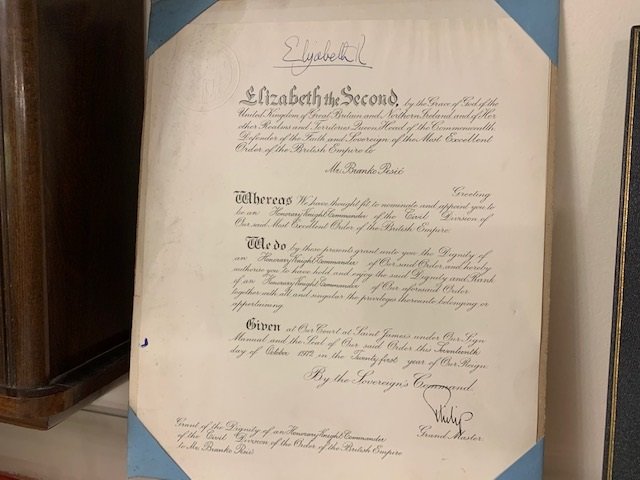 Elizabeth R
Elizabeth the Second, by the Grace of God of the
United Kingdom of Great Britain and Northern Ireland and of Her
other Realms and Territories Queen, Head of the Commonwealth,
Defender of the Faith and Sovereign of the Most Excellent
Order of the British Empire to
Mr. Branko Pesić
Greeting
Whereas We have thought fit to nominate and appoint you to
be an Honorary Knight Commander of the Civil Division of
Our said Most Excellent Order of the British Empire.
We do by these presents grant unto you the Dignity of
an Honorary Knight Commander of Our said Order and hereby
authorise you to have hold and enjoy the said Dignity and Rank
of an Honorary Knight Commander of Our aforesaid Order
together with all and singular the privileges thereunto belonging or
appertaining.
Given at Our Court at Saint James's under Our Sign
Manual and the Seal of Our said Order this Seventeenth
day of October 1972 in the Twenty-first year of Our Reign.
By the Sovereign's Command.
Philip
Grand Master.
Grant of the Dignity of an Honorary Knight Commander
of the Civil Division of the Order of the British Empire
to Mr. Branko Pesić